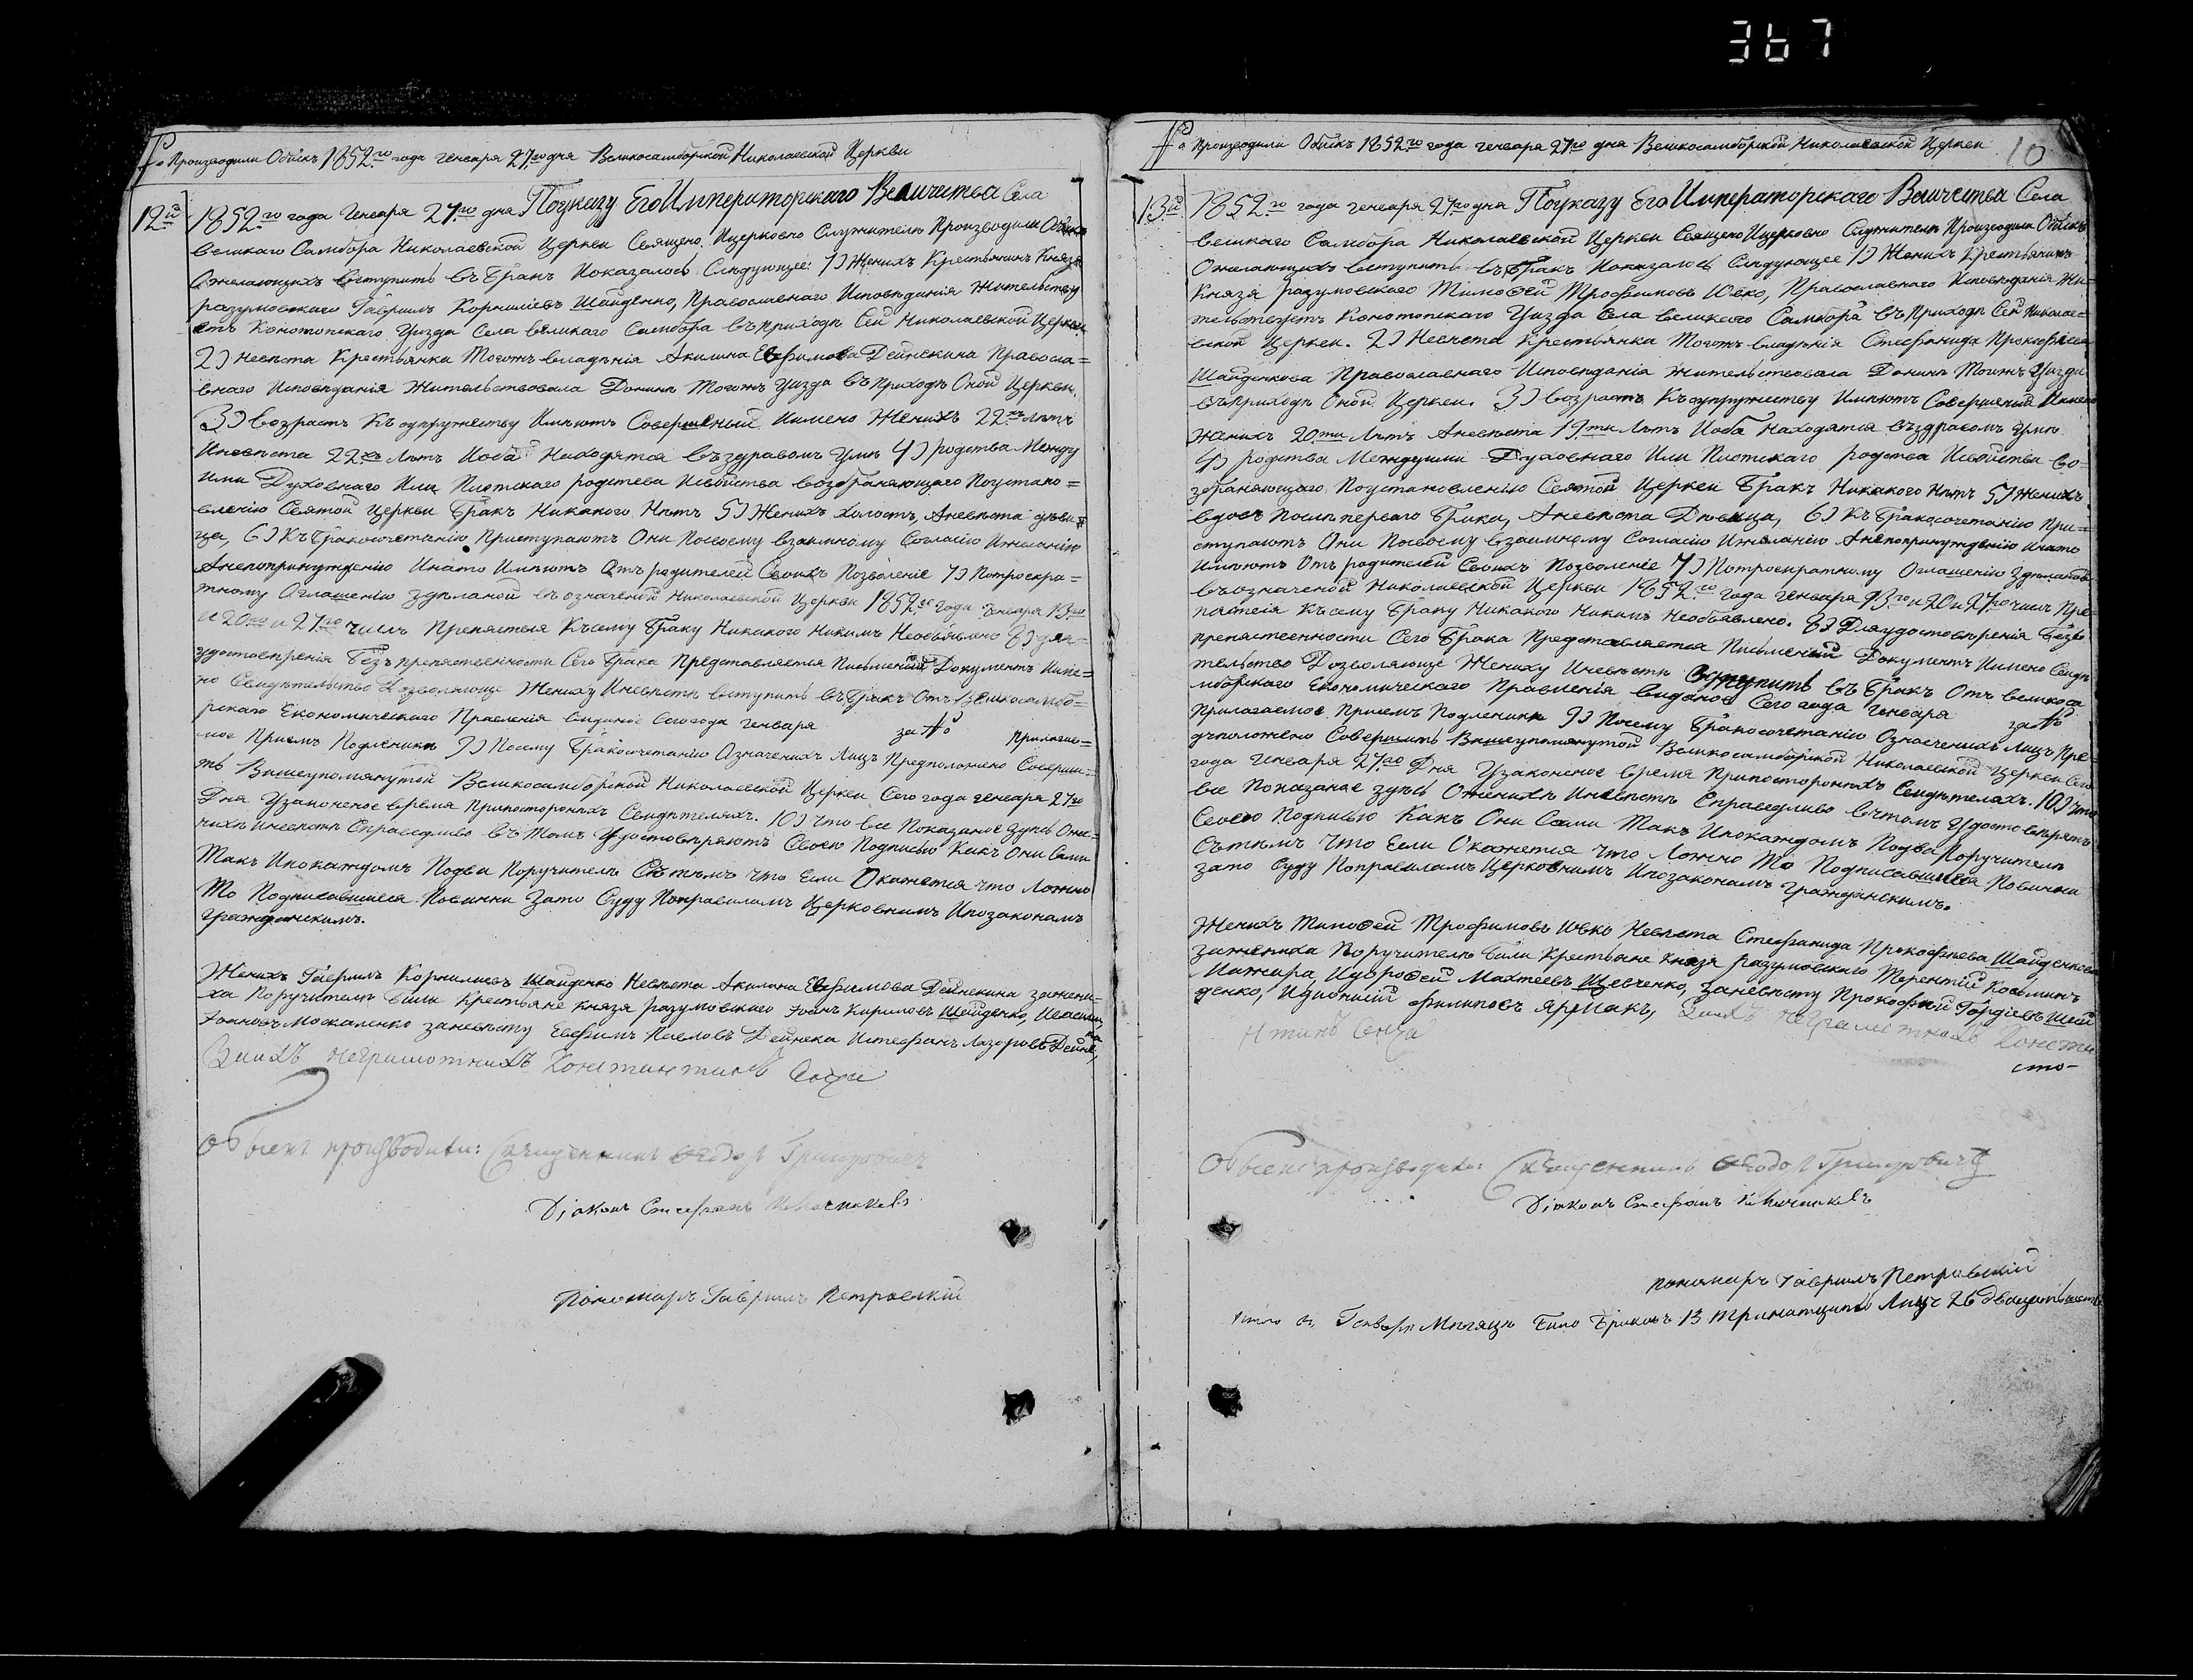 367
№ Производили Обыскъ 1852го года генваря 27го дня Великосамборской Николаевской Церкви
12й
1852го года Генваря 27го дня Поуказу Его Императорскаго Величества Села
великаго Самбора Николаевской Церкви Священо Ицерковно Служители Производили Обыскъ
Ожелающихъ вступить въ Бракъ Иоказалось Следующее: 1) Женихъ Крестьянинъ Князя
разумовскаго Гаврилъ Корнилиевъ Шайденко, Православнаго Исповѣданія Жительству
етъ Конотопскаго Уизда Села великаго Самбора въ приходѣ Сей Николаевской Церкви
2) Невѣста Крестьянка Тогожъ владѣнія Акилина Евфимова Дейнекина Правосла=
внаго Исповѣданія Жительствовала Донинѣ Тогожъ Уизда въ приходѣ Оной Церкви.
3) возрастъ Къ супружеству Имѣютъ Совершеный Имено Женихъ 22хъ лѣтъ
Иневѣста 22хъ лѣтъ Иоба Находятся въ здравомъ Умѣ 4) родства Между
ими Духовнаго Или Плотскаго родства Исвойства возбраняющаго Поустано=
влению Святой Церкви Бракъ Никакого Нѣтъ 5) Женихъ Холостъ, Аневѣста дѣви=
ца, 6) Къ Бракосочетанію Приступаютъ Они Посвоему взаимному Согласію Ижеланію
Анепопринужденію Инато Имѣютъ Отъ родителей Своихъ Позволеніе 7) Потроекра=
тному Оглашенію здѣланой въ означеной Николаевской Церкви 1852го года Генваря 13го
и 20го и 27го числъ Препятсвія Късему Браку Никакого Никимъ Необъявлено 8) для=
удостовѣренія Безъ препятственности Сего Брака Представляется Писменый Документъ Име=
но Свидѣтельство Дозволяюще Жениху Иневѣстѣ вступить въ Бракъ Отъ Великосамбо=
рскаго Економическаго Правленія виданое Сего года генваря за № Прилагае=
мое Присемъ Подленики 9) Посему Бракосочетанію Означеныхъ Лицъ Предположено Соверши=
ть Вишеупомянутой Великосамборской Николаевской Церкви Сего года генваря 27го
Дня Узаконеное время Припосторонихъ Свидѣтеляхъ. 10) Что все Показаное Здѣсь Оже=
нихѣ Иневѣстѣ Справедливо въ томъ Удостовѣряютъ Своею Подписью Какъ Они Сами
Такъ Ипокаждомъ Подва Поручителя Съ тѣмъ что Если Окажется что Ложно
То Подписавшиеся Повинни Зато Суду Поправиламъ Церковнимъ Ипозаконамъ
гражданскимъ.
Женихъ Гаврилъ Корнилиевъ Шайденко Невѣста Акилина Евфимова Дейнекина зажени=
ха Поручители били Крестьяне Князя разумовскаго Іоанъ Кириловъ Шайденко, Иваси
Іоановъ Москаленко заневѣсту Евфимъ Павловъ Дейнека Истефанъ Лазоровъ Дейне
Обыскъ производили: Священникъ Ѳеодоръ Григоровичъ
Діаконъ Стефанъ Ключниковъ
Пономарь Гаврилъ Петровскій
№ Производили Обыскъ 1852го года генваря 27го дня Великосамборской Николаевской Церкви 10
13й
1852го года генваря 27го дня Поуказу Его Императорскаго Величества Села
великаго Самбора Николаевской Церкви Священо Ицерковно Служители Производили Обыскъ
Ожелающихъ вступить въ Бракъ Иоказалось Следующее 1) Женихъ Крестьянинъ
Князя разумовского Тимоѳей Трофимовъ Ювко, Православнаго Исповѣданія Жи=
тельствуетъ Конотопскаго Уизда Села великаго Самбора въ приходѣ Сей Николае=
вской Церкви. 2) Невѣста Крестьянка Тогожъ владѣнія Стефанида Прокофиева
Шайденкова Православнаго Исповѣданія жительствовала Донинѣ Тогожъ Уизда
въ приходѣ Оной Церкви. 3) возрастъ Къ супружеству Имѣютъ Совершеный Имено
Женихъ 20ти Лѣтъ Аневѣста 19ти Лѣтъ Иоба Находятся въ здравомъ Умѣ
4) родства Междуими Духовнаго Или Плотскаго родства Исвойства во=
збраняющаго Поустановленію Святой Церкви Бракъ Никакого Нѣтъ 5) Женихъ
вдовъ Послѣ перваго Брака, Аневѣста Дѣвица, 6) Къ Бракосочетанію При=
ступаютъ Они Посвоему взаимному Согласію Ижеланію Анепопринужденію Инато
Имѣютъ Отъ родителей Своихъ Позволеніе 7) Потроекратному Оглашенію Здѣланой
въ означеной Николаевской Церкви 1852го года генваря 13го и 20 и 27го числъ Пре=
пятсвія Късему Браку Никакого Никимъ Необъявлено. 8) Для удостовѣренія Безъ
препятственности Сего Брака Представляется Писменый Документъ Имено Свидѣ
тельство Дозволяюще Жениху Иневѣстѣ вступить въ Бракъ Отъ великоса
мборскаго Економическаго Правленія виданое Сего года генваря за №
Прилагаемое Присемъ Подленики 9) Посему Бракосочетанію Означеныхъ Лицъ Пре=
дположено Совершить Вишеупомянутой Великосамборской Николаевской Церкви Сего
года генваря 27го Дня Узаконеное время Припосторонихъ Свидѣтеляхъ. 10) что
все Показаное здѣсь Оженихѣ Иневѣстѣ Справедливо въ томъ Удостовѣрятъ
Своею Подписью Какъ Они Сами Такъ Ипокаждомъ Подва Поручителя
Съ тѣмъ что Если Окажется что Ложно То Подписавшиеся Повинни
зато Суду Поправиламъ Церковнимъ Ипозаконамъ гражданскимъ.
Женихъ Тимоѳей Трофимовъ Ювко Невѣста Стефанида Прокофиева Шайденкова
зажениха Поручители били Крестьяне Князя разумовскаго Терентій Косьминъ
Мажара Идороѳей Махтеевъ Шевченко, заневѣсту Прокофий Гордіевъ Шай
денко, Идионисій Филиповъ Ярмакъ,
Обыскъ производили: Священникъ Ѳеодоръ Григоровичъ
Діаконъ Стефанъ Ключниковъ
пономарь Гаврилъ Петровскій
Мѣсяцѣ Било Браковъ 13 тринатцить Лицъ 26